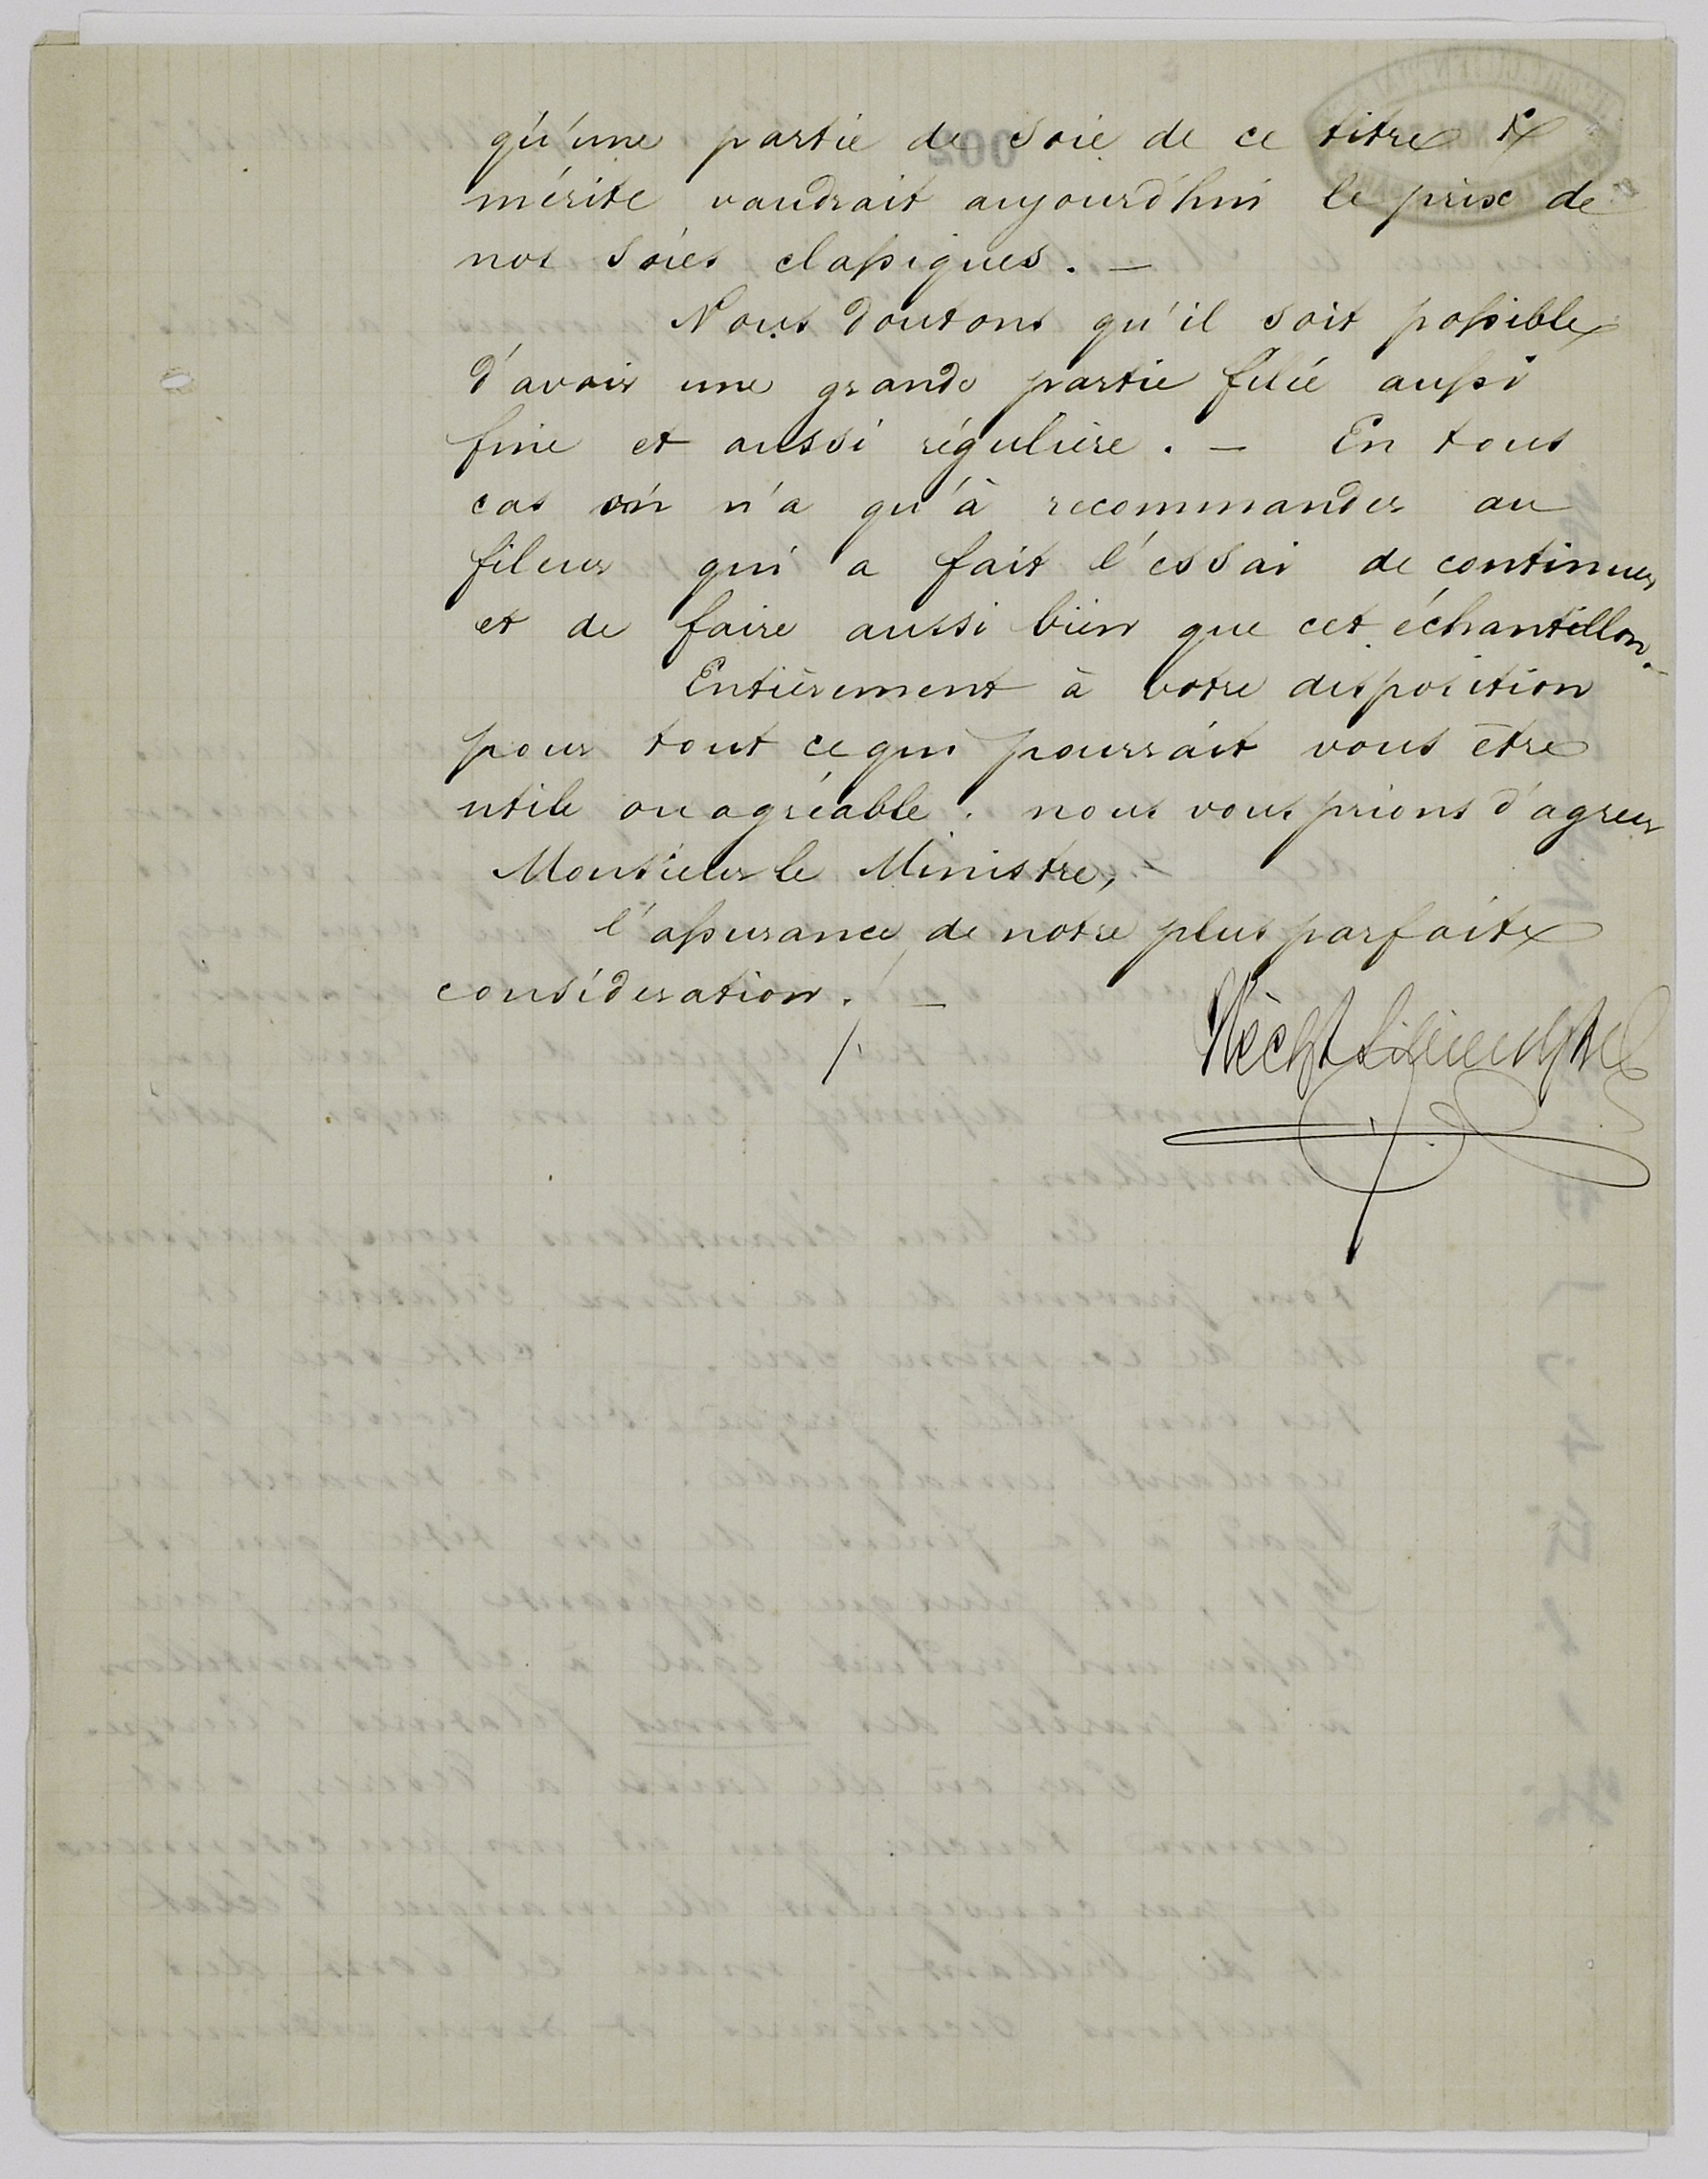 qu'une partie de soie de ce titre &
mérite vaudrait aujourd'hui le prix de
nos soies classiques. —
Nous doutons qu'il soit possible
d'avoir une grande partie filée aussi
fine et aussi régulière. — En tous
cas on n'a qu'à recommander au
fileur qui a fait l'essai de continuer
et de faire aussi bien que cet échantillon. —
Entièrement à votre disposition
pour tout ce qui pourrait vous être
utile ou agréable. nous vous prions d'agréer
Monsieur le Ministre,
l'assurance de notre plus parfaite
considération. / —
Hecht Lilienthal